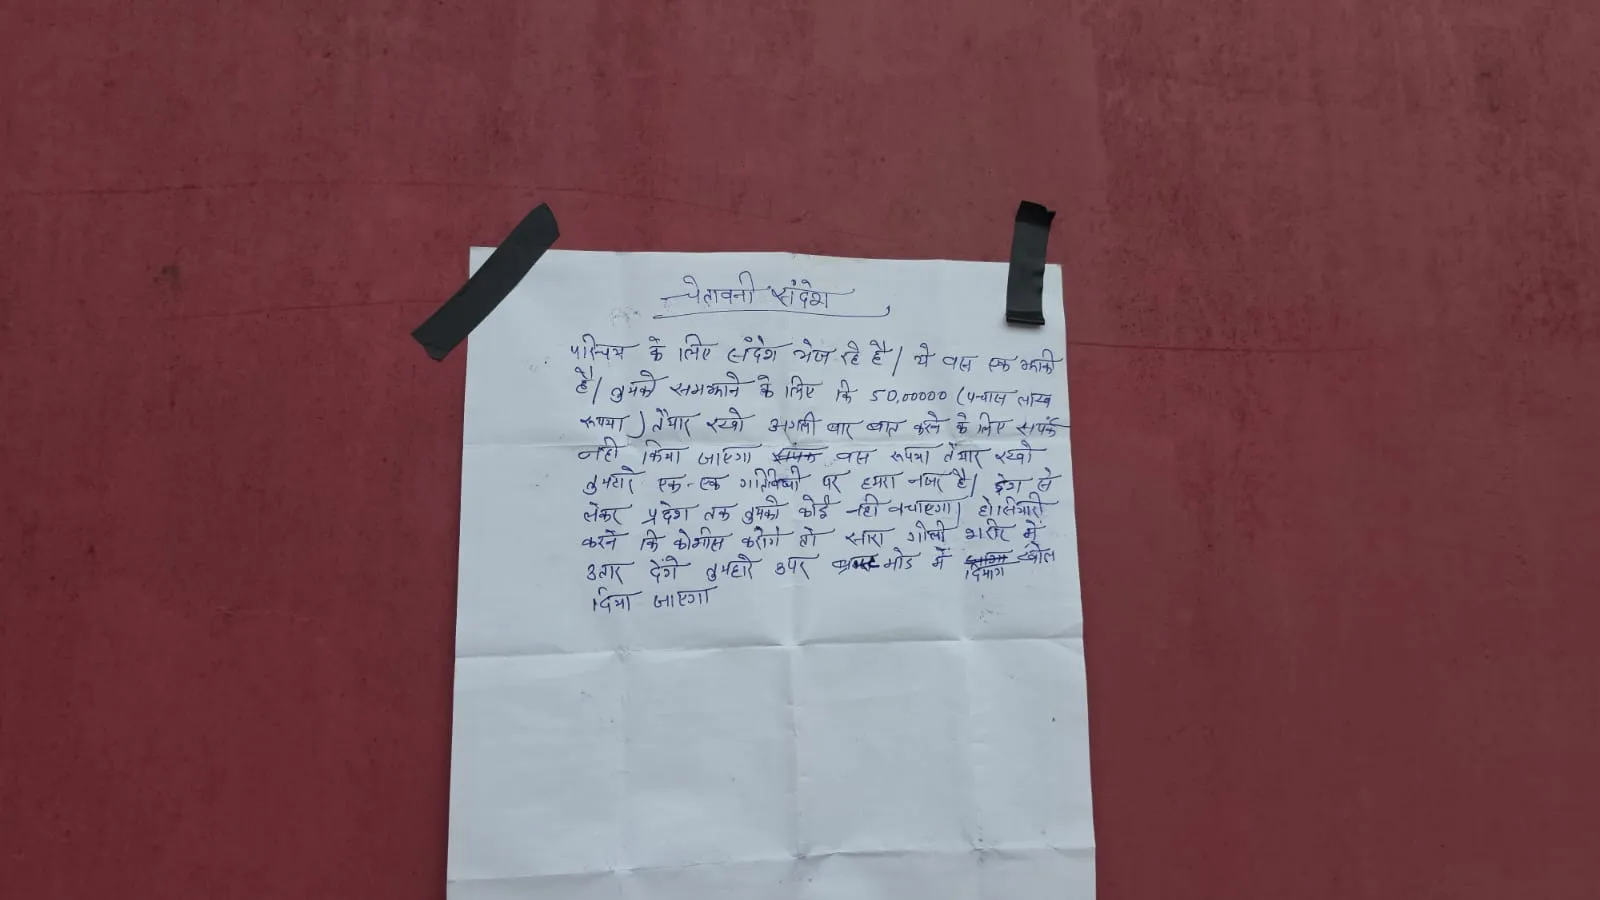 चेतावनी संदेश
परिचय के लिए संदेश भेज रहे है। ये बस एक झांकी
है। तुमको समझाने के लिए कि 50,00000 (पचास लाख
रूपया) तैयार रखो अगली बार बात करने के लिए संपर्क
नही किया जाएगा बस रूपया तैयार रखो
तुमहारे एक-एक गतिविधी पर हमरा नजर है।  से
लेकर प्रदेश तक तुमको कोई नही बचाएगा। होसियारी
करने कि कोसीस करोगे तो सारा गोली शरीर में
उतार देंगे तुमहारे उपर मोड में दिमाग खोल
दिया जाएगा